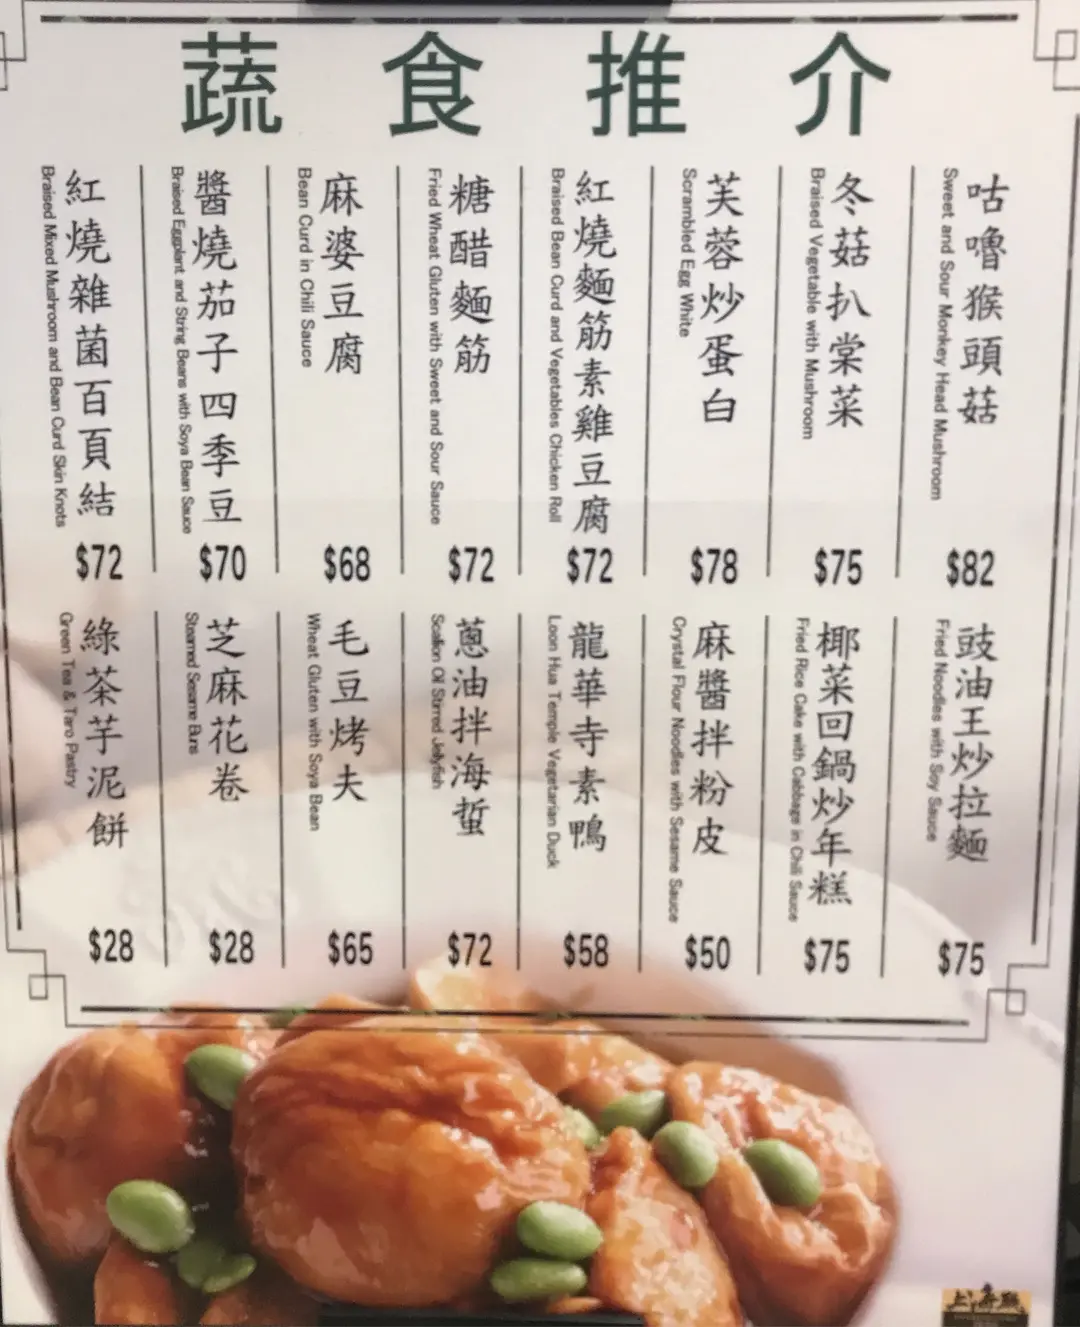 蔬食推介
咕嚕猴頭菇
Sweet and Sour Monkey Head Mushroom
$82
冬菇扒棠菜
Braised Vegetable with Mushroom
$75
芙蓉炒蛋白
Scrambled Egg White
$78
紅燒麵筋素雞豆腐
Braised Bean Curd and Vegetables Chicken Roll
$72
糖醋麵筋
Fried Wheat Gluten with Sweet and Sour Sauce
$72
麻婆豆腐
Bean Curd in Chili Sauce
$68
醬燒茄子四季豆
Braised Eggplant and String Beans with Soya Bean Sauce
$70
紅燒雜菌百頁結
Braised Mixed Mushroom and Bean Curd Skin Knots
$72
豉油王炒拉麵
Fried Noodles with Soy Sauce
$75
椰菜回鍋炒年糕
Fried Rice Cake with Cabbage in Chili Sauce
$75
麻醬拌粉皮
Crystal Flour Noodles with Sesame Sauce
$50
龍華寺素鴨
Loon Hua Temple Vegetarian Duck
$58
蔥油拌海蜇
Scallion Oil Stirred Jellyfish
$72
毛豆烤夫
Wheat Gluten with Soya Bean
$65
芝麻花卷
Steamed Sesame Buns
$28
綠茶芋泥餅
Green Tea & Taro Pastry
$28